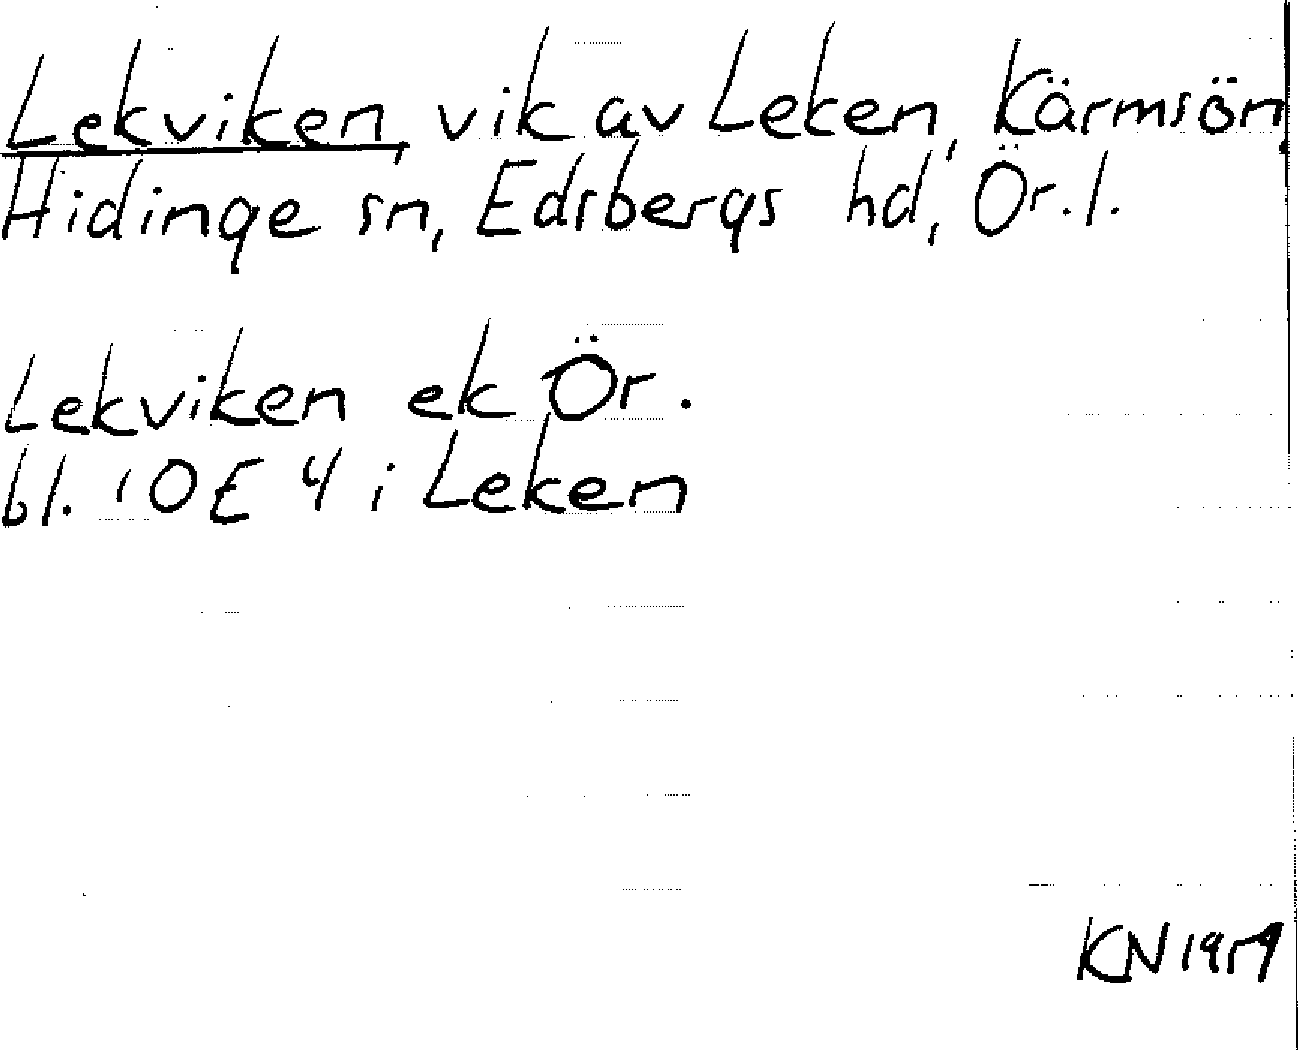 Lekviken, vik av Leken, Kärmsön,
Hidinge sn, Edsbergs hd, Ör. l.
Lekviken ek Ör.
bl. 10 E 4 i Leken
KN